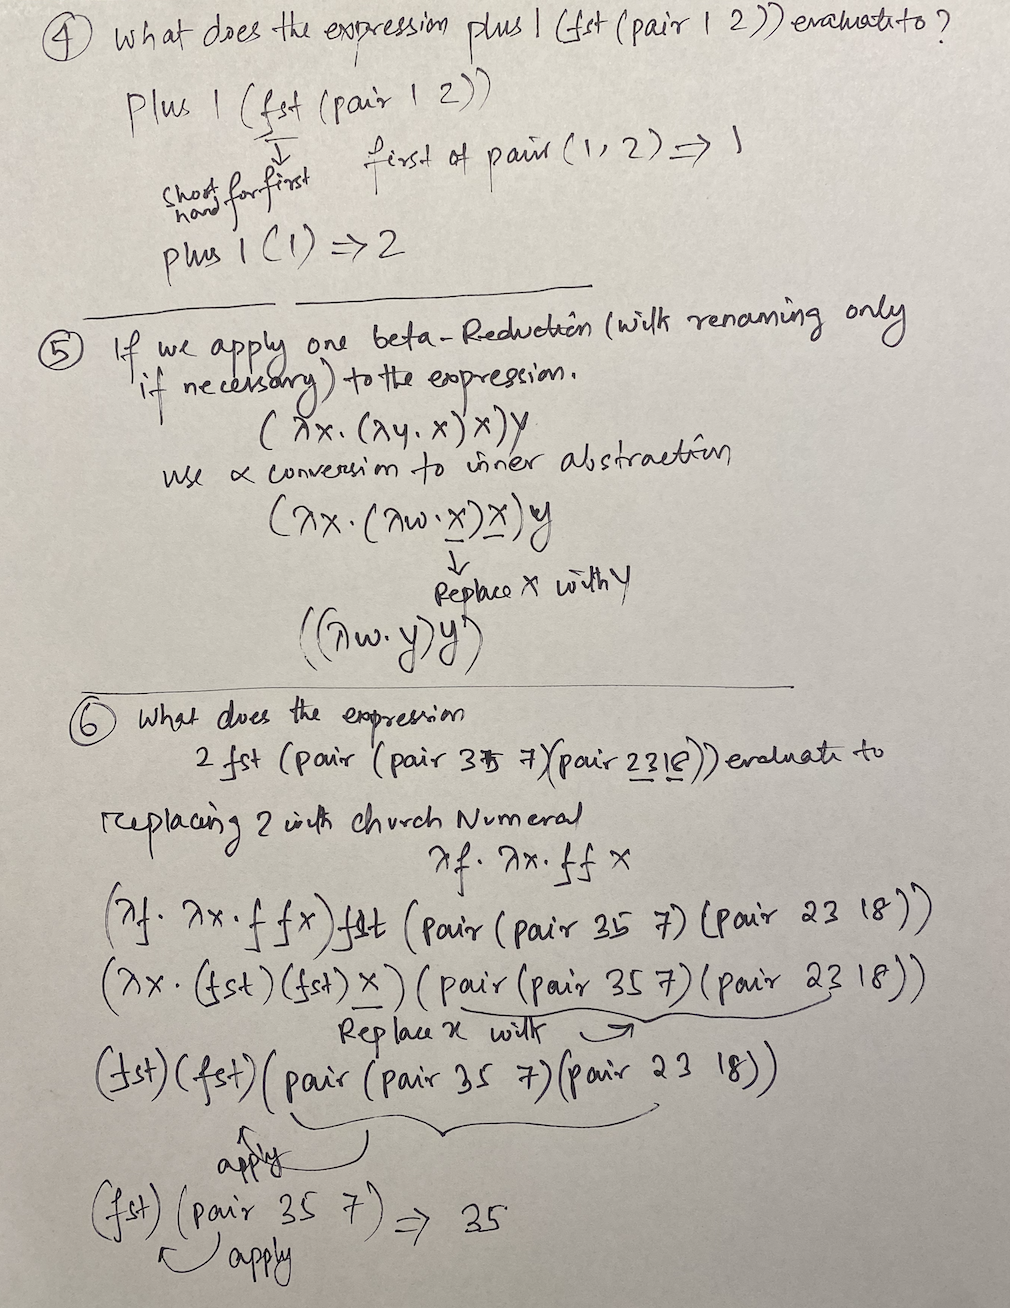 ④ What does the expression plus 1 (fst (pair 1 2)) evaluate to?
plus 1 (fst (pair 1 2))
↓ first of pair (1, 2) ⇒ 1
Short hand for first
plus 1 (1) ⇒ 2
⑤ If we apply one beta-Reduction (with renaming only
if necessary) to the expression.
(λx. (λy. x) x) y
use α conversion to inner abstraction
(λx. (λw. x) x) y
↓
Replace x with y
((λw. y) y)
⑥ What does the expression
2 fst (pair (pair 35 7)(pair 23 18)) evaluate to
replacing 2 with church Numeral
λf. λx. f f x
(λf. λx. f f x) fst (pair (pair 35 7) (pair 23 18))
(λx. (fst) (fst) x) (pair (pair 35 7) (pair 23 18))
Replace x with
(fst) (fst) (pair (pair 35 7) (pair 23 18))
apply
(fst) (pair 35 7) ⇒ 35
apply